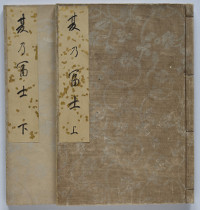 夏乃冨士 上
夏乃冨士 下